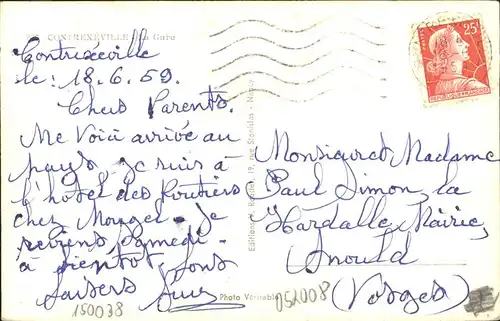 CONTREXÉVILLE La Gare
Contrexéville
le : 18.6.59.
Chers Parents.
Me Voià arrivé au
pays je suis à
l'hôtel des Routiers
chez Mougel - je
reviens Samedi -
à bientôt bons
baisers
25F
Monsieur et Madame
Paul Simon, la
Hardalle, Mairie,
Anould
(Vosges)
19, rue Stanislas - Nancy
Photo Véritable
150038
051008